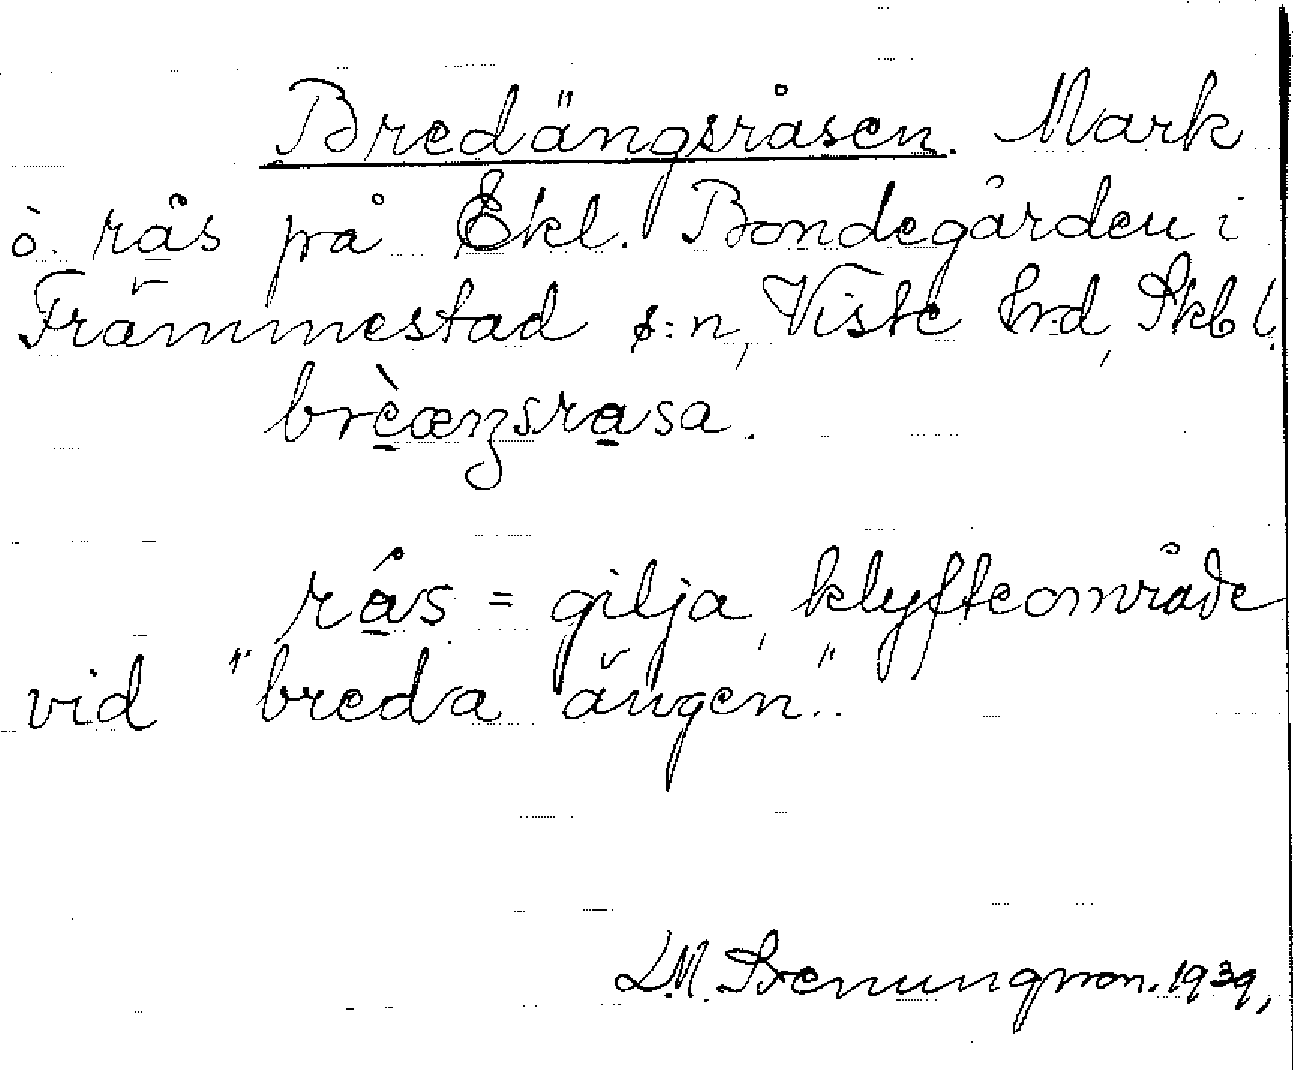 Bredängsråsen. Mark
ò. rås på Ekl. Bondegården i
Främmestad s:n, Viste hrd, Skbl.
brèænsrasa.
rås = gilja, klyfteområde
vid "breda ängen".
L.M. Svenungsson. 1939,